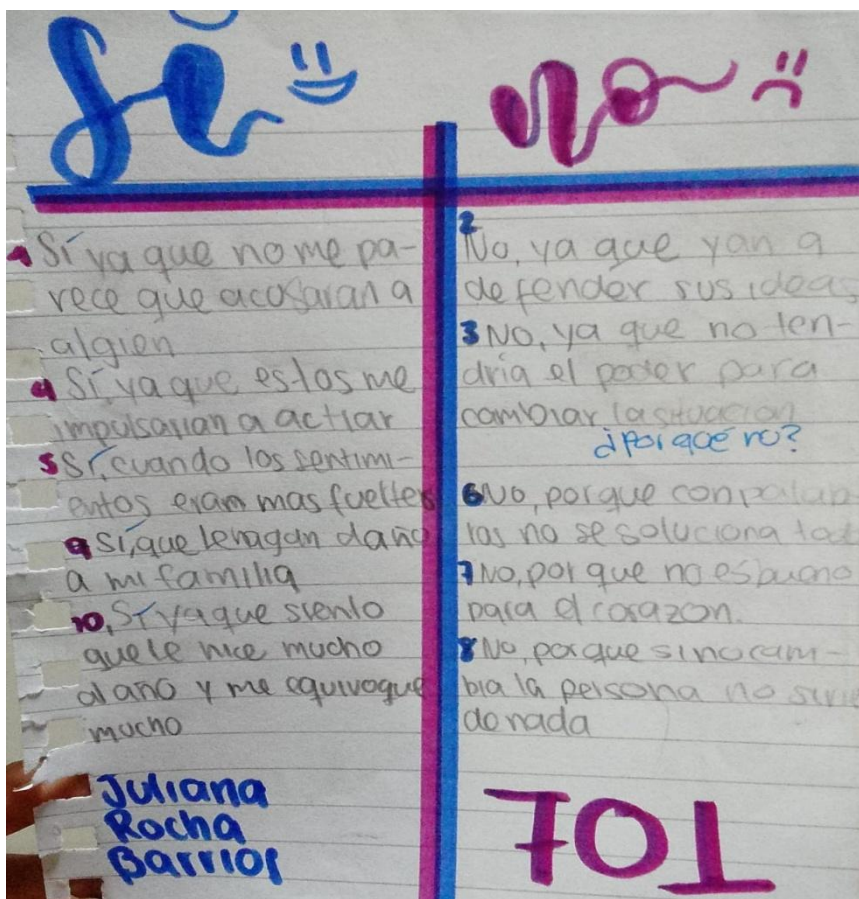 Sí
no
1 Sí ya que no me pa-
rece que acosaran a
algien
4 Sí, ya que estos me
impulsarian a actiar
5 Sí, cuando los sentimi-
entos eran mas fuertes
9 Sí, que le hagan daño
a mi familia
10, Sí ya que siento
que le hice mucho
daño y me equivoque
mucho
Juliana
Rocha
Barrios
2
No, ya que van a
defender sus ideas
3 No, ya que no ten-
dría el poder para
cambiar la situacion
¿Por qué no?
6 No, porque con
las no se soluciona
7 No, por que no es bueno
para el corazon.
8 No, porque si no cam-
bia la persona no
de nada
701